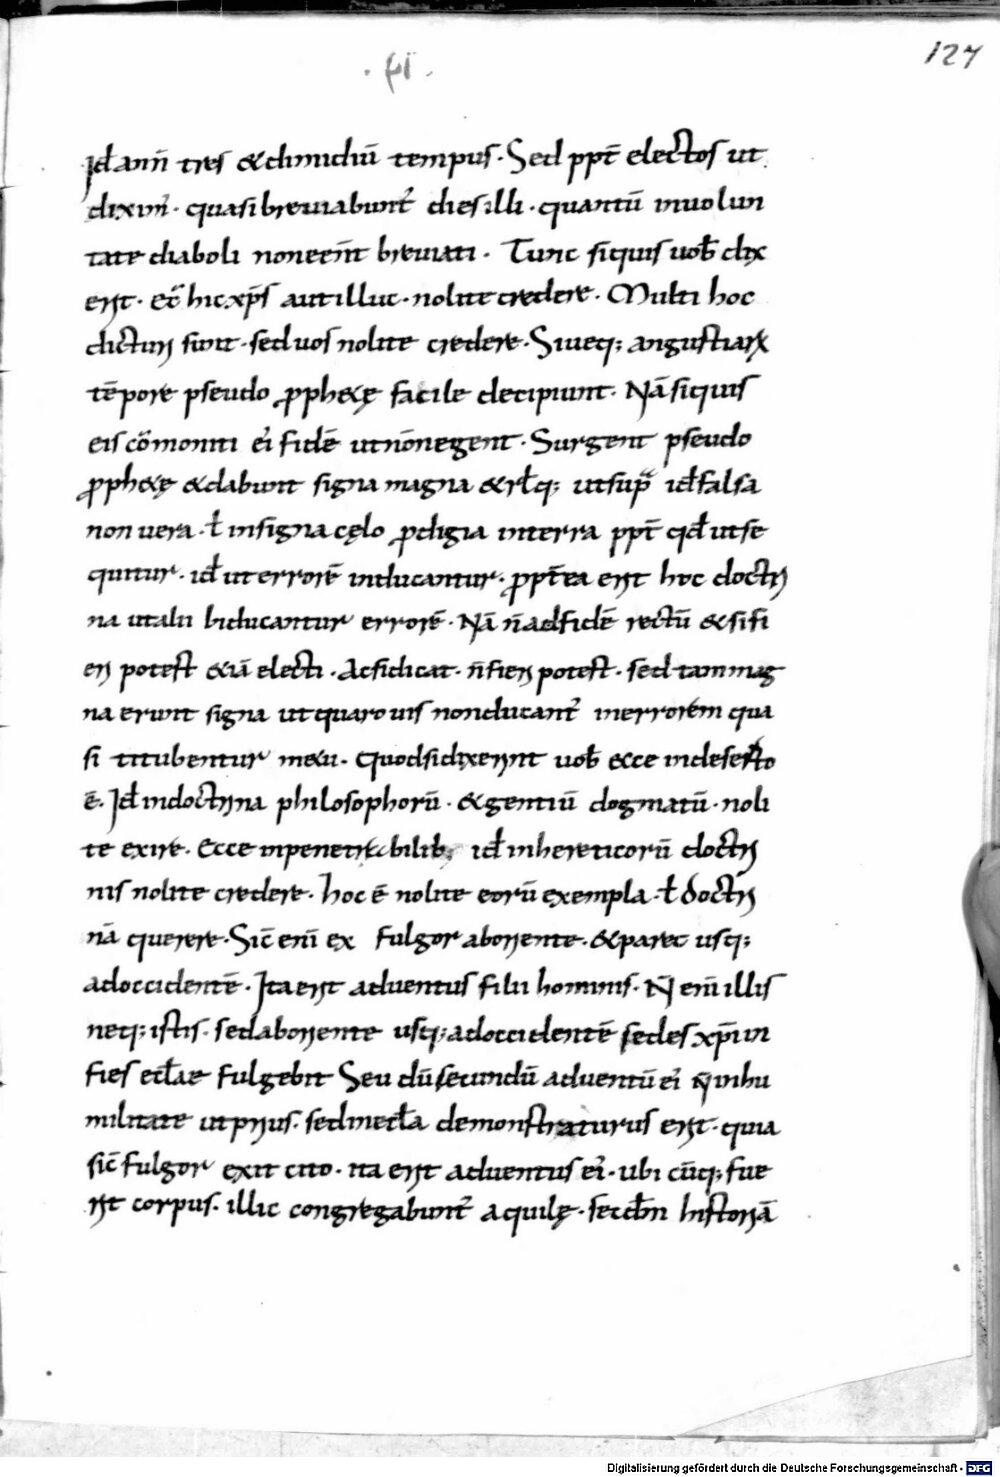 127
Id ann̄ tres & dimidiū tempus · Sed ꝓpt̄ electos ut
diximꝰ · quasi breuiabunt᷑ dies illi · quantū in uolun
tate diaboli non eern̄t breuiati · Tunc siquis uob̄ dix
erit · ecc̄ hic xp̄s aut illuc · nolite credere · Multi hoc
dicturi sunt · sed uos nolite credere · Siue q; angustiarꝝ
tēpore pseudo ꝓph&ę facile decipiunt · Nā siquis
eis cōmoniti eiꝰ fidē ut nō negent · Surgent pseudo
ꝓph&ę & dabunt signa magna & rłq; ut sup͛ id̄ falsa
non uera · ł in signa cęlo ꝓdigia in terra ꝓpt̄ qđ ut se
quitur · id̄ ut errorē inducantur · ꝓpt̄ea erit hoc doctri
na ut alii biducantur errorē · Nā n̄ ad fidē rectū & si fi
eri potest &iā electi · Ac si dicat · n̄ fieri potest · sed tam mag
na erunt signa ut quarouis non ducant᷑ in errorem qua
si titubentur m&u · Quod si dixerint uob̄ ecce in deserto
ē · Id̄ in doctrina philosophorū · & gentiū dogmatū · noli
te exire · Ecce in penetrabilib; id̄ in hereticorū doctri
nis nolite credere · hoc ē nolite eorū exempla · ł doctri
nā querere · Sic̄ eni̅ ex fulgor ab oriente · & par&c usq;
ad occidentē · Ita erit aduentus filii hominis · N̄ eni̅ illis
neq; istis · sed ab oriente usq; ad occidentē sedes xp̄i in
fies ecłae fulgebit Seu dū secundū aduentū eiꝰ n̄ in hu
militate ut prius · sed in ecła demonstraturus erit · quia
sic̄ fulgor exit cito · ita erit aduentus eiꝰ · ubi cūq; fue
rit corpus · illic congregabunt᷑ aquilę · secd̄m historiā
Digitalisierung gefördert durch die Deutsche Forschungsgemeinschaft - DFG